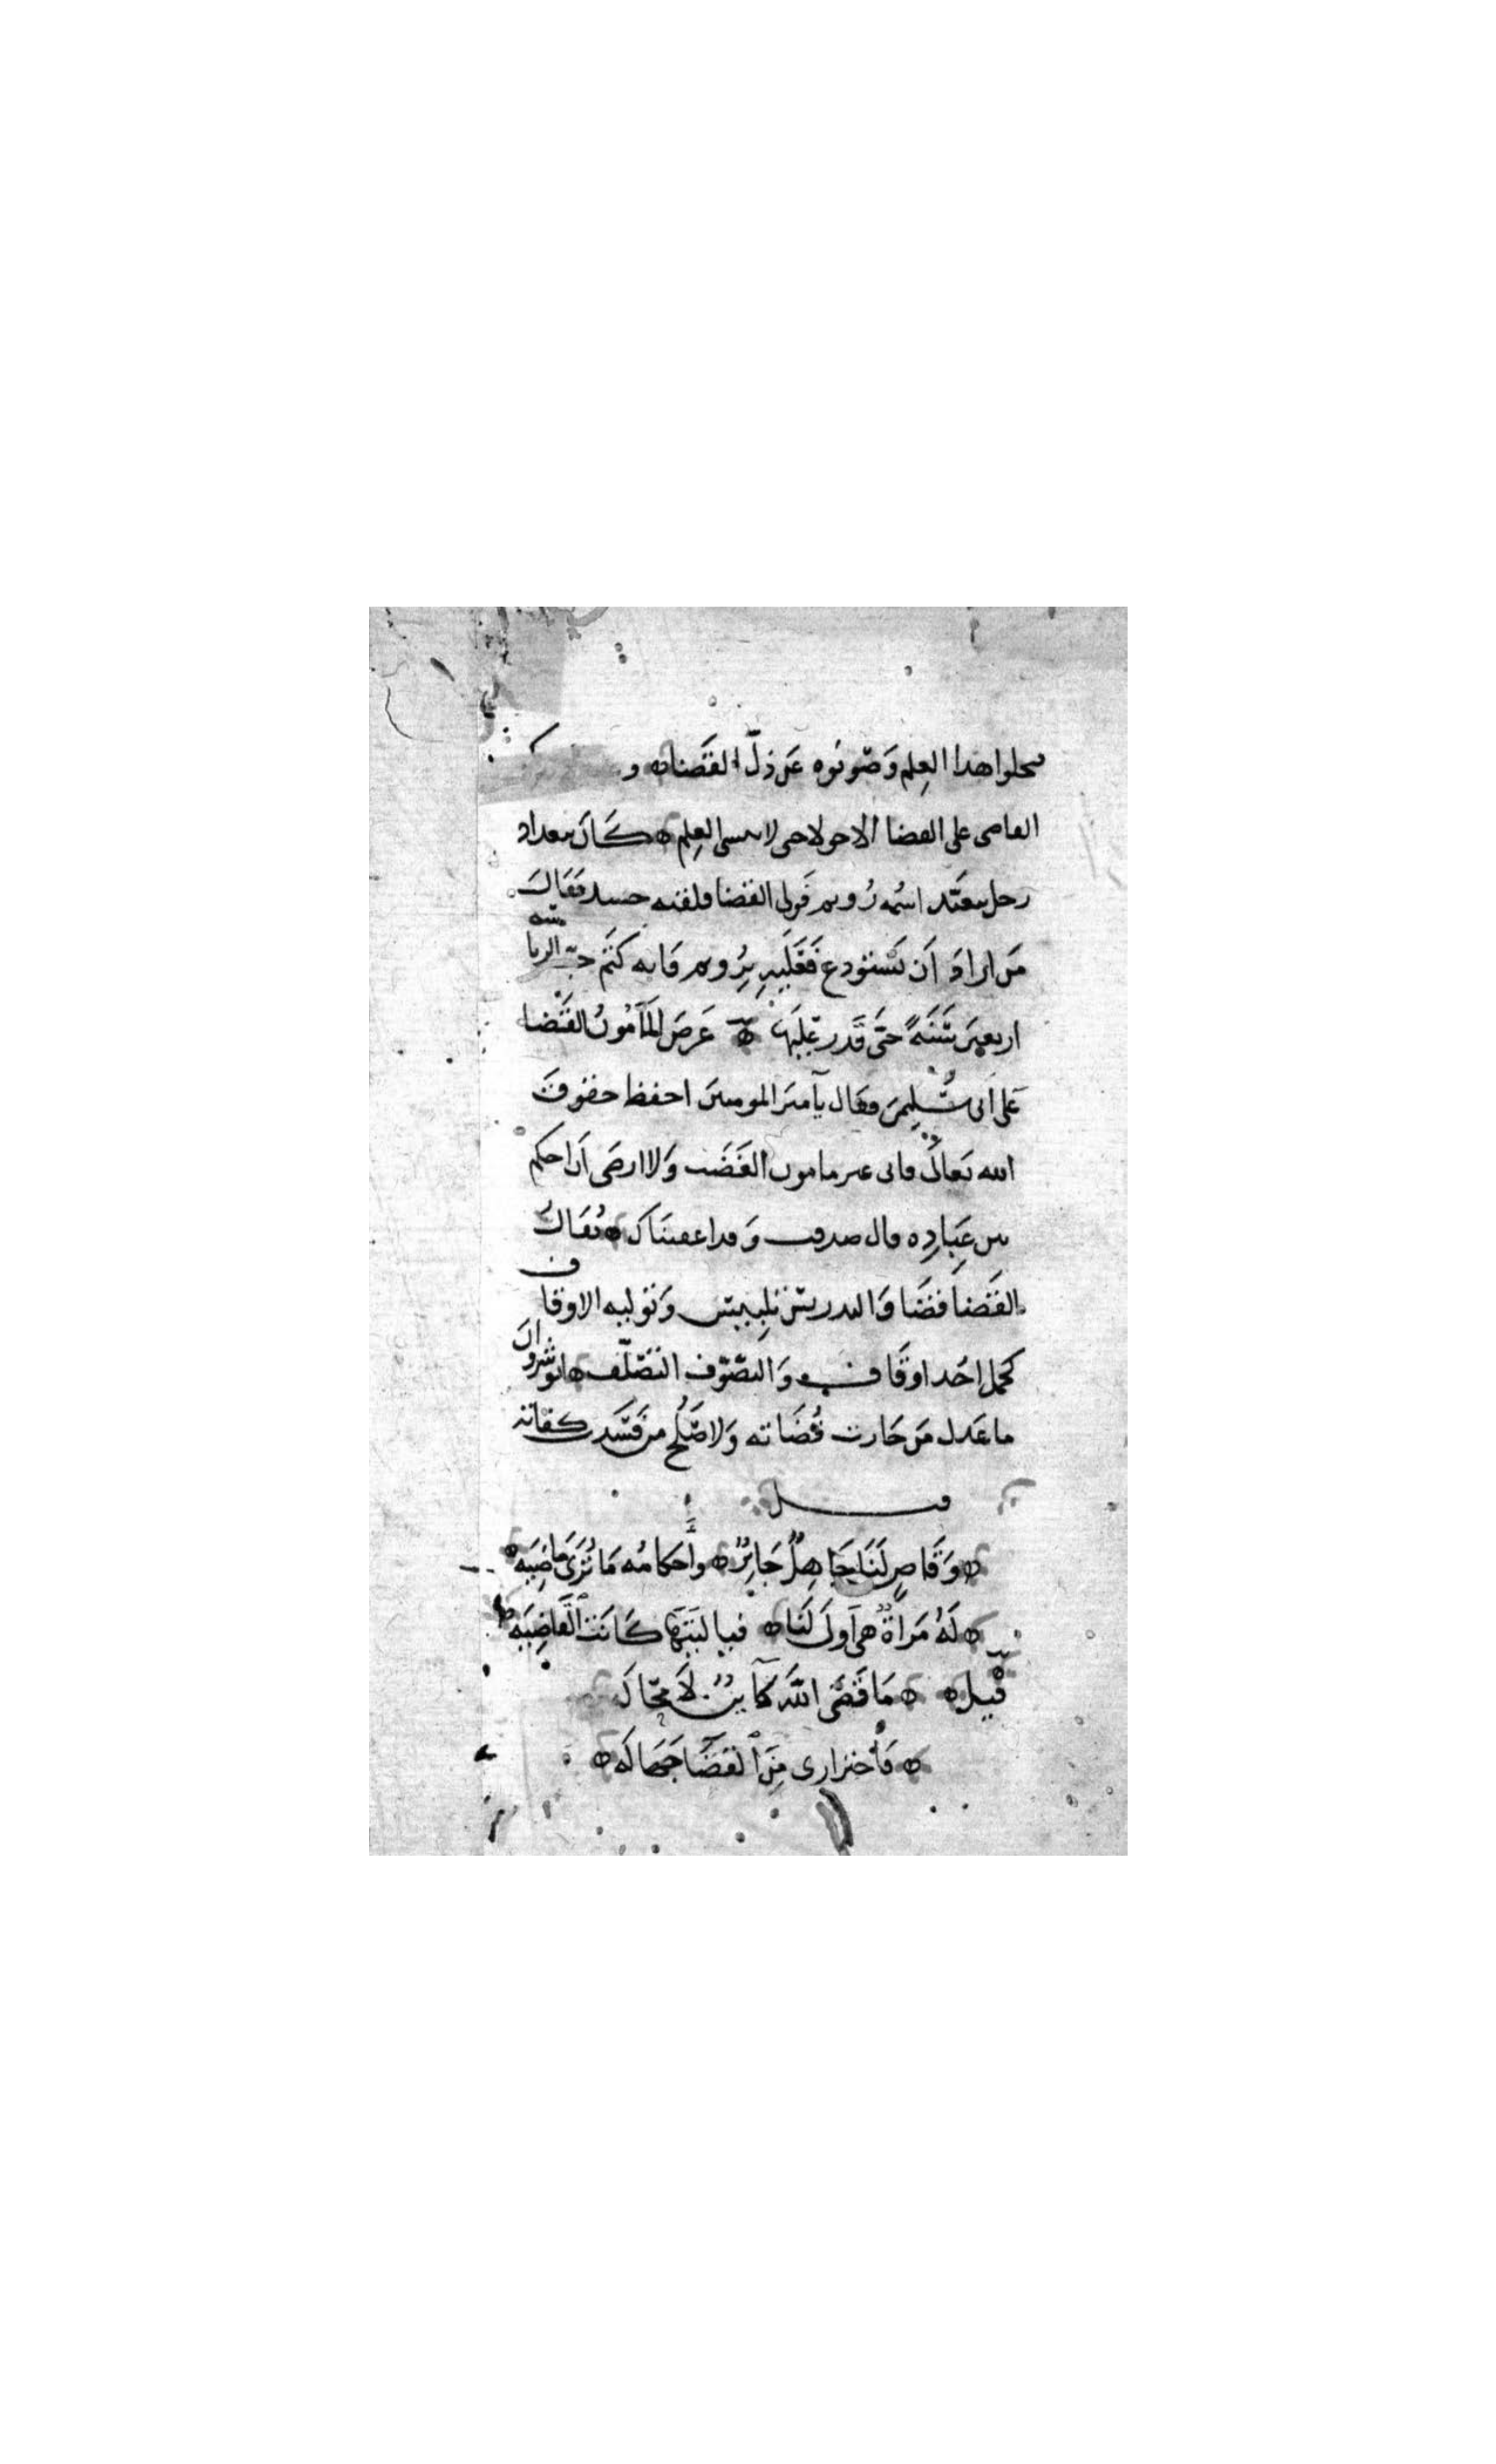 هذا العلم وصونوه عن ذل القضاة و
القاضي على القضا الا حي لا العلم كان ببغداد
رجل متعبد اسمه رويم فولي القضا فلقيه جنيد فقال
من اراد ان يستودع فعليه برويم فانه كتم حب الدنيا
اربعين سنة حتى قدر عليها عرض المأمون القضا
على ابي سليمن فقال يا امير المومنين احفظ حقوق
الله تعالى فاني غير مامون الغضب ولا ارضى ان احكم
بين عباده قال صدقت وقد اعفيناك يقال
القضا فضا والتدريس تلبيس وتولية الاوقاف
كحمل احد او قاف والتصوف التصلف انوشروان
ما عدل من جارت قضاته ولا صلح من فسدت كفاته
قيل
وقاض لنا جاهل جائر واحكامه ما نرى ماضيه
له مراة هي اولى لنا فيا ليتها كانت القاضيه
قيل ما قضى الله كاين لا محاله
فاحترازي من القضا جهاله